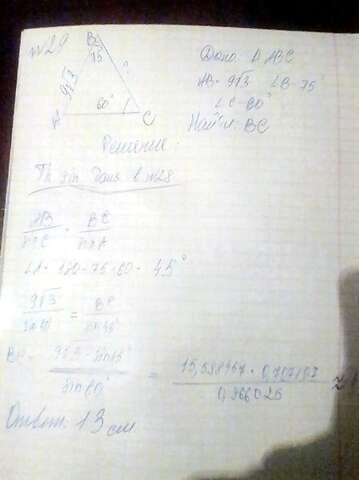 №29
B
75
9√3
?
60°
A
C
Дано: Δ ABC
AB = 9√3 ∠B = 75°
∠C = 60°
Найти: BC
Решение:
Th sin дана в №28
AB/sin C = BC/sin A
∠A = 180 - 75 - 60 = 45°
9√3/sin 60 = BC/sin 45°
BC = 9√3 · sin 45°/sin 60° = 15,588457 · 0,707107/0,866025 ≈ 1
Ответ: 13 см